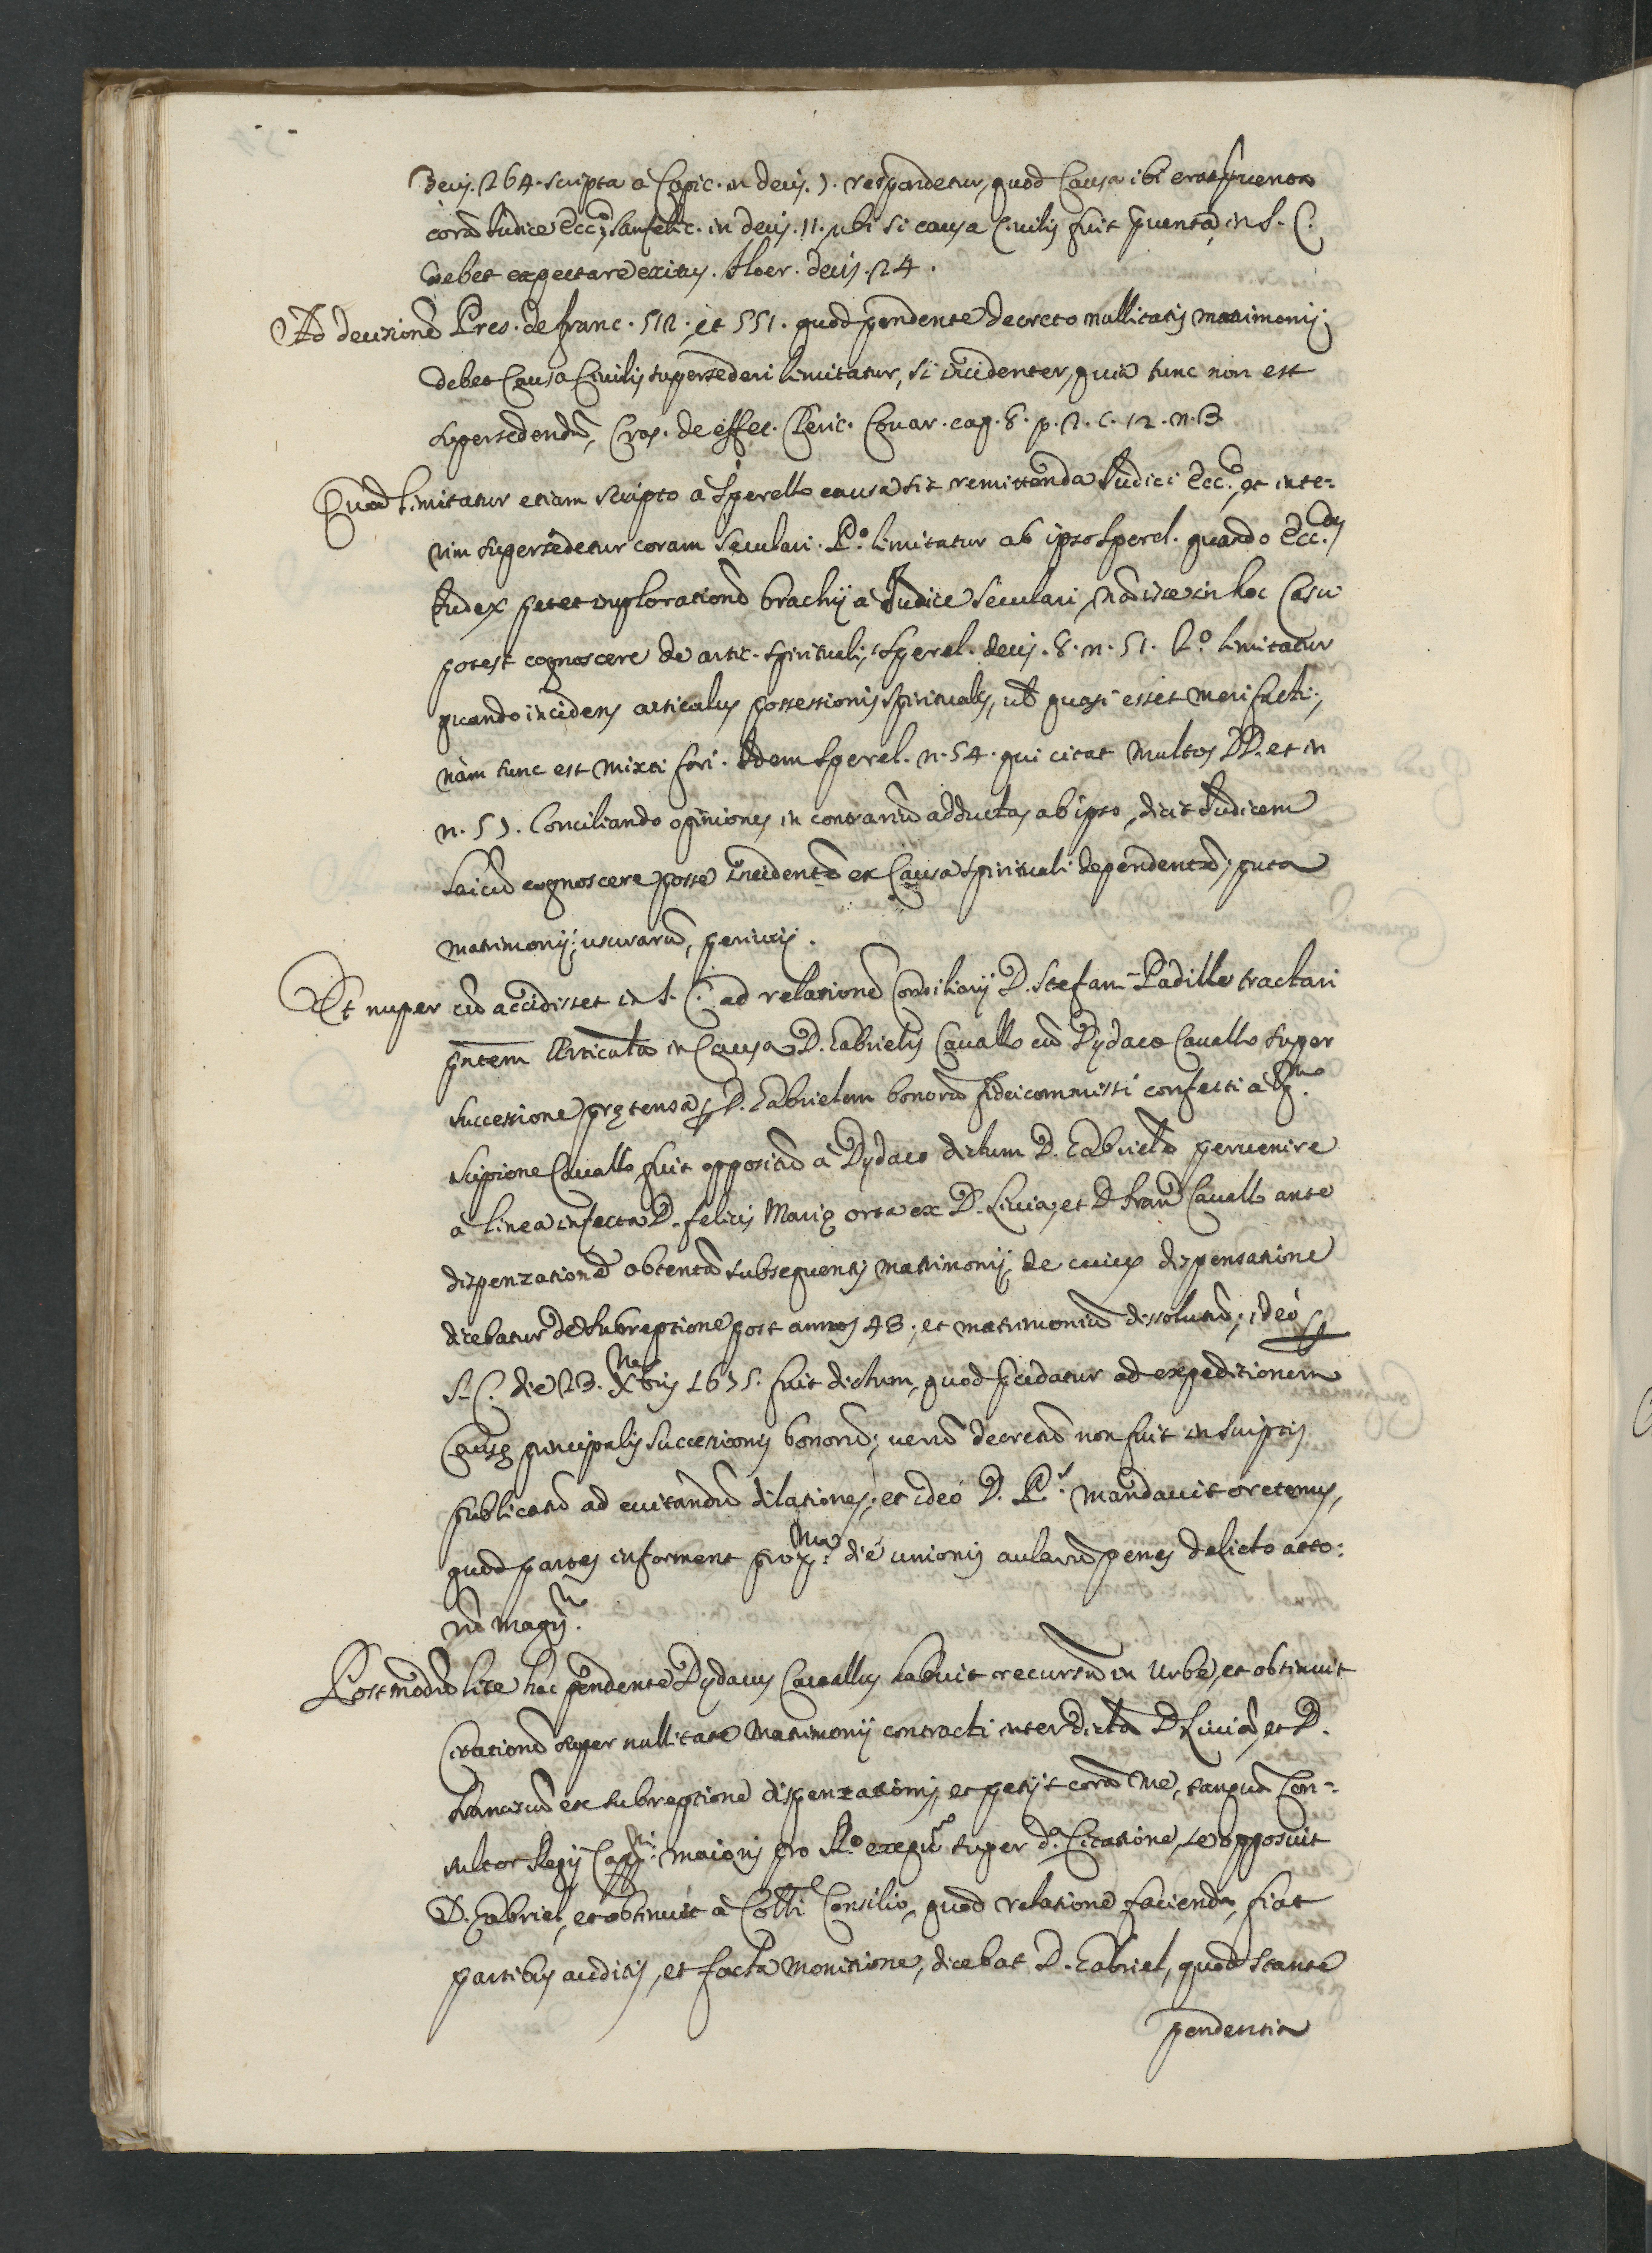 Decis. 264. scripta a Capic. in decis. 7. respondetur, quod Causa ibi erat pventa
corã Iudice Ecc.co, Sanfelic. in decis. 11. ubi si causa Civilis fuit pventa, in S. C.
debet expectare exitus. Aloer. decis. 24.
Ad decisionẽ Pres. de franc. 512. et 551. quod pendente decreto nullitatis matrimonij
debet Causa Civilis supersederi limitatur, si incidenter, quia tunc non est
supersedendũ, Gras. de effec. Cleric. Covar. cap. 8. p. 2. c. 12. n. 3
Quod limitatur etiam scripto à Sperello causa sit remittenda Iudici Ecc.co, et inte=
rim supersedetur coram Seculari. P.o limitatur ab ipso Sperel. quando Ecc.cus
Iudex petet implorationẽ brachij à Iudice Seculari, nã iste in hoc Casu
potest cognoscere de artic. spirituali, Sperel. decis. 8. n. 51. 2.o limitatur
quando incidens articulus possessionis spiritualis, ut quasi esset meri facti,
nàm tunc est mixti fori. Idem Sperel. n. 54. qui citat multos DD. et in
n. 57. Conciliando opiniones in contrariũ adductas ab ipso, dicit Iudicem
laicũ cognoscere posse incidentẽ ex Causa spirituali dependentẽ, puta
matrimonij, usurarũ, periurij.
Et nuper cũ accidisset in S. C. ad relationẽ Consiliarij D. Stefani Padille tractari
pntem Articulũ in Causa D. Gabrielis Cavallo cũ Dydaco Cavallo super
successione prętensa p D. Gabrielem bonorũ fideicommissi confecti à q.m
Scipione Cavallo, fuit oppositũ à Dydaco dictum D. Gabrielẽ pervenire
à linea infecta D. felicis Marię orta ex D. Livia, et D. Franc.o Cavallo ante
dispenzationẽ obtentã subsequentis matrimonij, de cuius dispensatione
dicebatur de subreptione post annos 43, et matrimoniũ dissolutũ; ideò p
S. C. die 23. Xbris 1675. fuit dictum, quod pcedatur ad expeditionem
Causę principalis successionis bonorũ; verũ decretũ non fuit in scriptis
publicatũ ad evitandũ dilationes; et ideò D. P.s mandavit oretenus,
quod partes informent prox.ma die unionis aularũ penes delicto atto:
no magis.
Postmodũ lite hac pendente Dydacus Cavallus habuit recursũ in Urbe, et obtinuit
Citationẽ super nullitate Matrimonij contracti inter dictã D. Liviã, et D.
Franciscũ ex subreptione dispenzationis, et petijt corã me, tanquã Con=
sultor Regij Capp.ni maioris pro R.o exequt.r super d.a Citatione, se opposuit
D. Gabriel, et obtinuit à Coll.li Consilio, quod relatione facienda, fiat
partibus auditis, et facta monitione, dicebat D. Gabriel, quod stante
pendentia